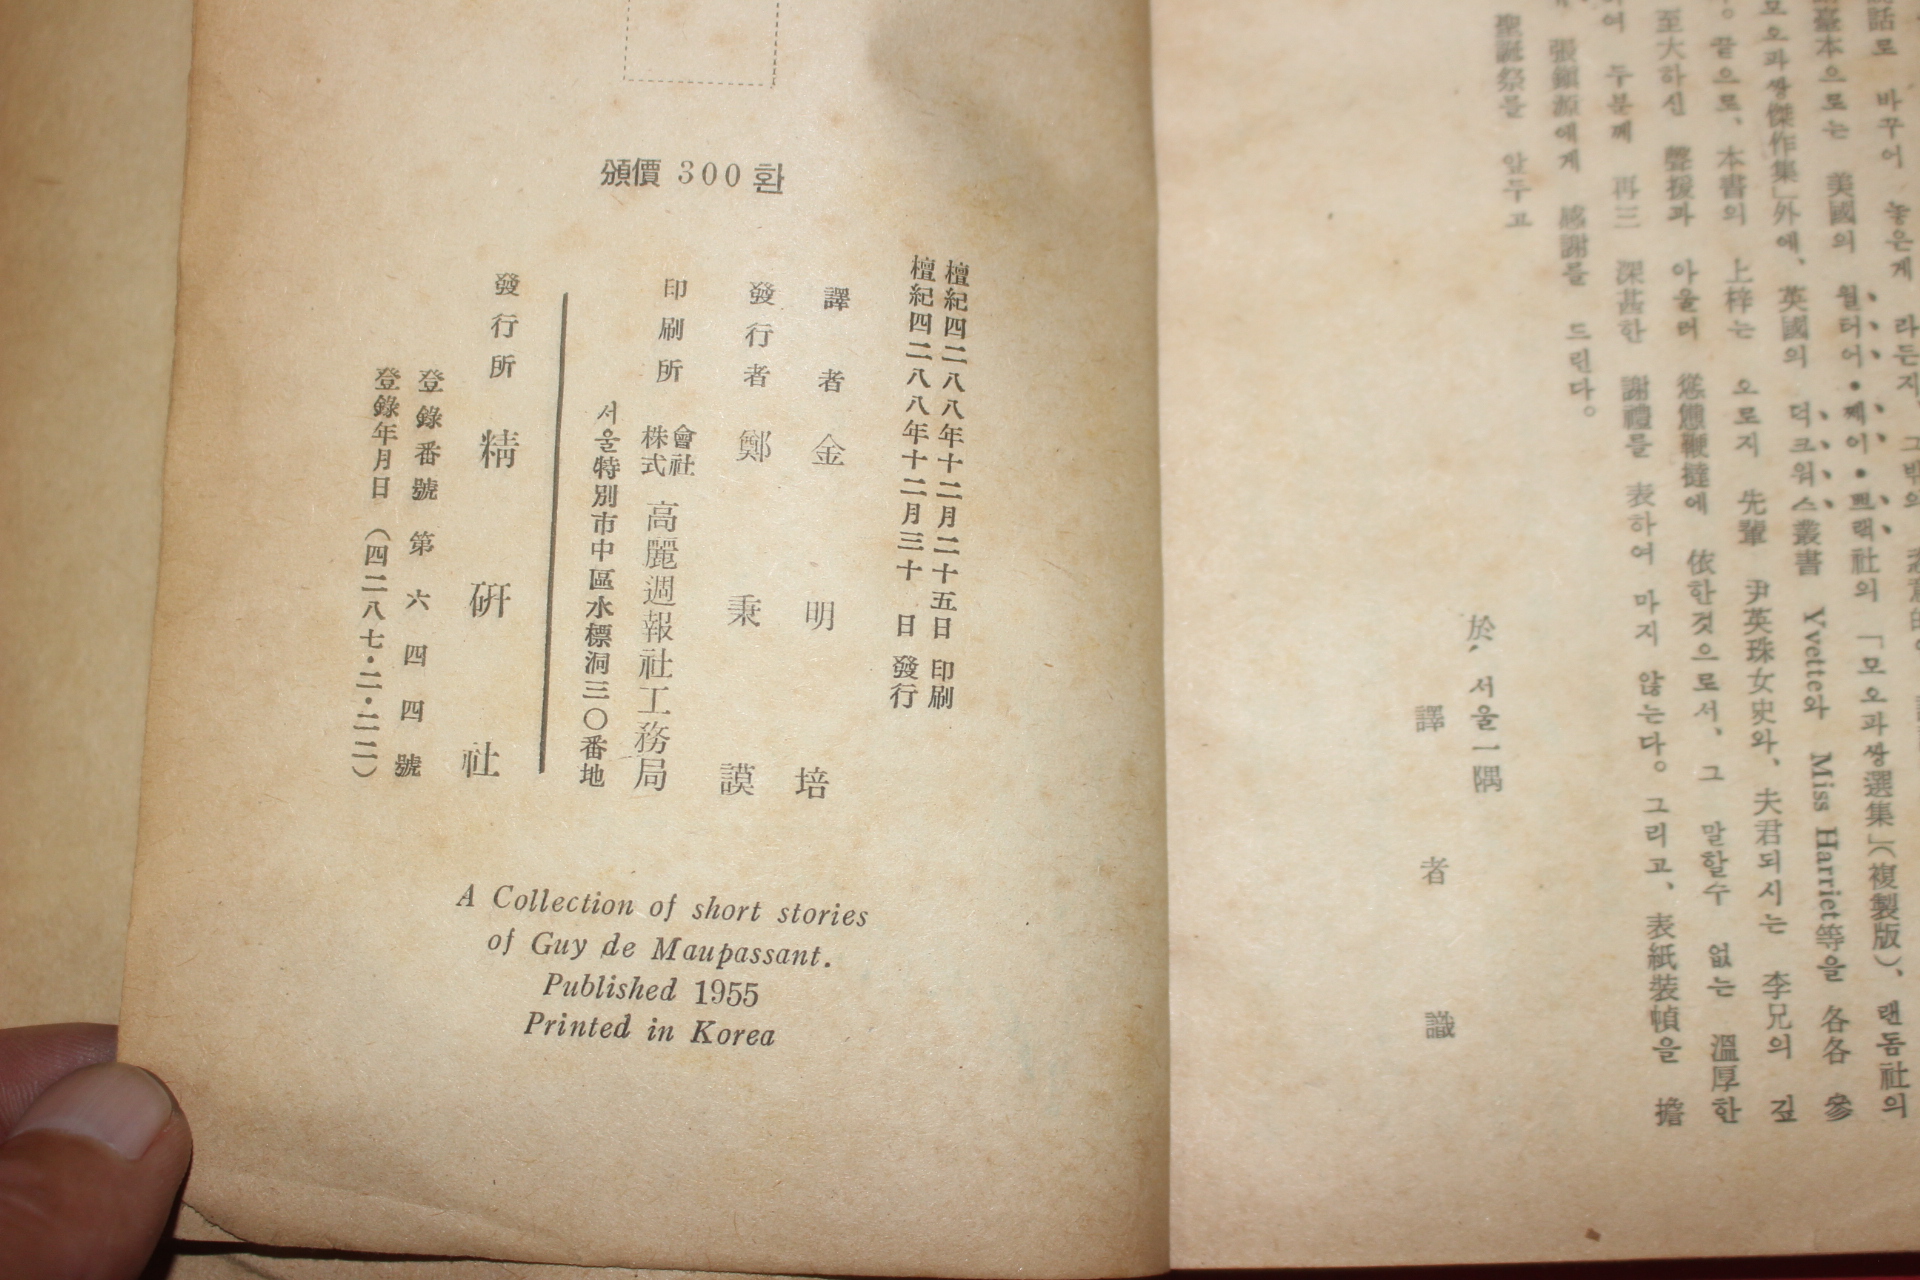 話로 바꾸어 놓은게 라든지, 그밖의
臺本으로는 美國의 월터어•쩨이•쁘랙社의 「모오파쌍選集」(複製版), 랜돔社의
모오파쌍傑作集」外에, 英國의 덕크워스叢書 Yvette와 Miss Harriet等을 各各 參
끝으로, 本書의 上梓는 오로지 先輩 尹英珠女史와, 夫君되시는 李兄의 깊
至大하신 聲援과 아울러 慫慂鞭撻에 依한것으로서, 그 말할수 없는 溫厚한
두분께 再三 深甚한 謝禮를 表하여 마지 않는다. 그리고, 表紙裝幀을 擔
張鎭源에게 感謝를 드린다.
聖誕祭를 앞두고
於, 서울一隅
譯者識
頒價 300환
檀紀四二八八年十二月二十五日 印刷
檀紀四二八八年十二月三十日 發行
譯者 金明培
發行者 鄭秉謨
印刷所 株式會社 高麗週報社工務局
서울特別市中區水標洞三〇番地
發行所 精硏社
登錄番號 第六四四號
登錄年月日 (四二八七•二•二二)
A Collection of short stories
of Guy de Maupassant.
Published 1955
Printed in Korea